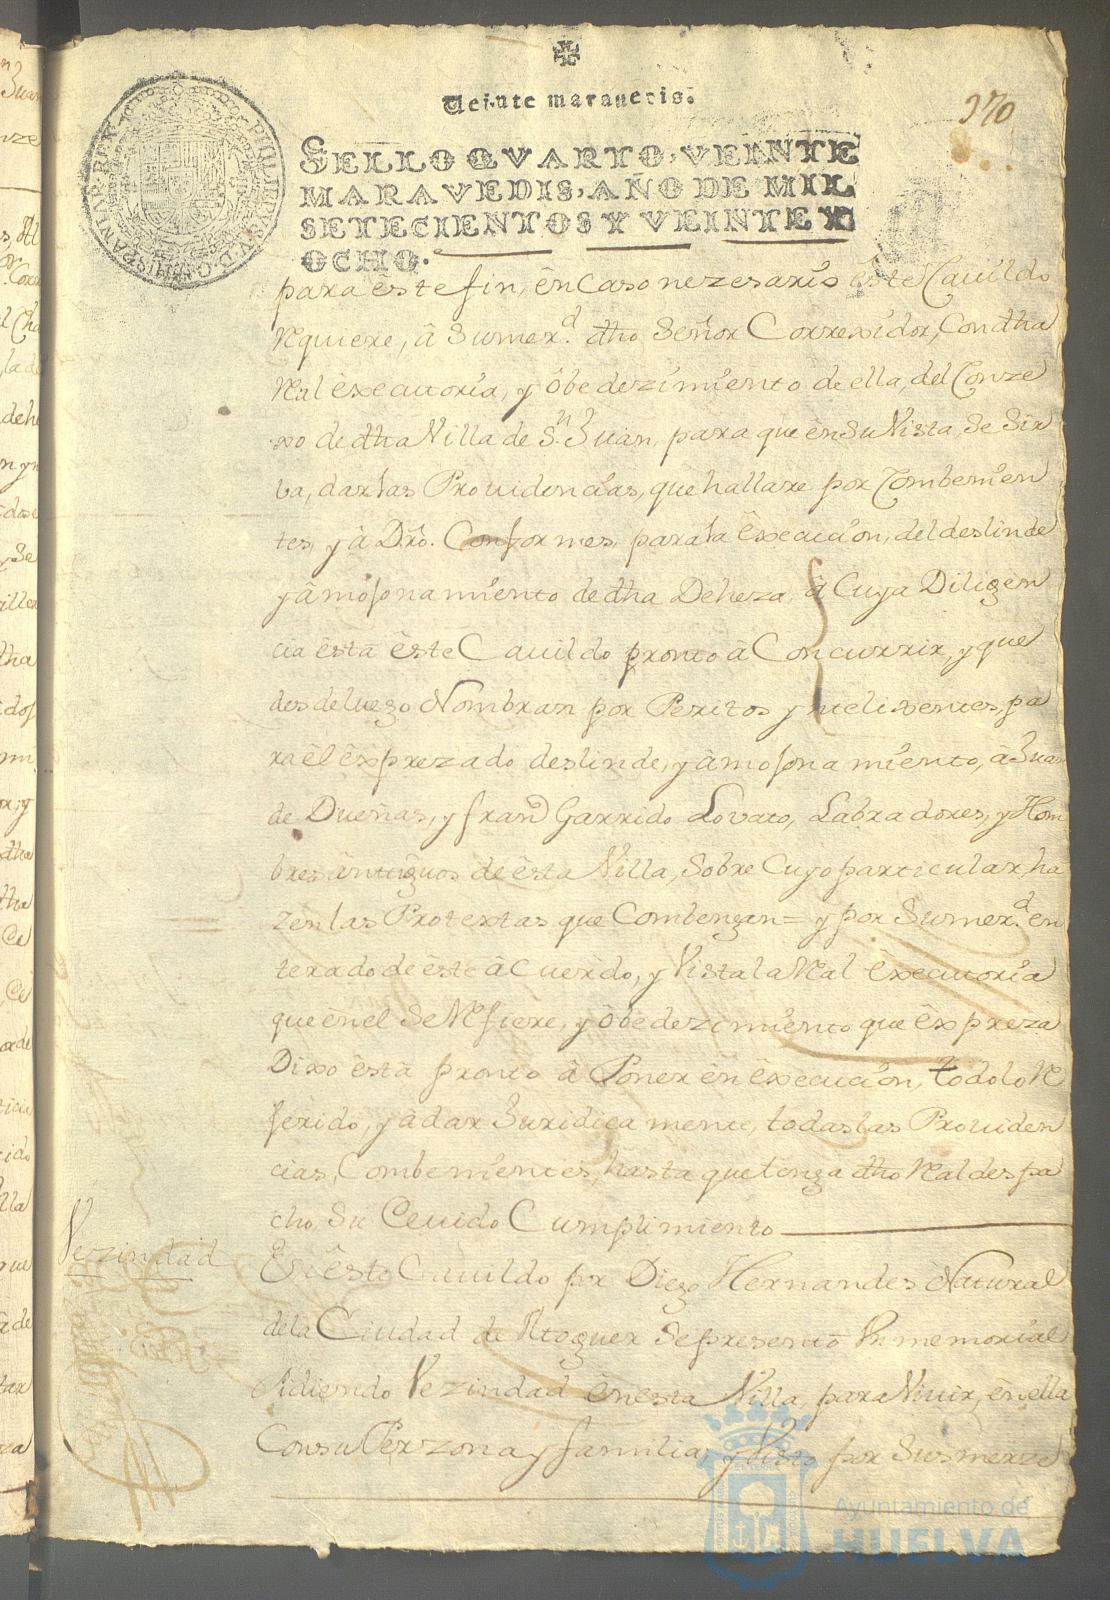 Veinte maravedis.
370
SELLO QVARTO, VEINTE
MARAVEDIS, AÑO DE MIL
SETECIENTOS Y VEINTE Y
OCHO.
PHILIPPVS V D G HISPANIAR REX
para êste fin, ên Caso nezesario êste Cauildo
Requiere, â Sumerd. dho Señor Correxidor, Con dha
Real êxecutoria, y ôbedezimiento de ella, del Conze
xo de dha Villa de Sn. Juan, para que ên Su Vista, Se Sir
ba, dar las Prouidencias, que hallare por Combenien
tes, y â Dro. Conformes, para la êxecucion, del deslinde
y âmojonamiento de dha Deheza, â Cuya Diligen
cia êstâ êste Cauildo pronto â Concurrir, y que
desde luego Nombran por Peritos y nteligentes pa
ra êl êxprezado deslinde, y âmojonamiento, â Juan
de Dueñas, y Frando Garrido Lovato, Labradores, y Hom
bres ântiguos de êsta Villa, Sobre Cuyo particular, ha
zen las Protextas que Combengan = y por Sumerd. en
terado de êste âcuerdo, y Vista la Real êxecutoria
que ên el Se Refiere, y ôbedezimiento que êxpreza
Dixo êstâ pronto â Poner ên êxecucion, todo lo Re
ferido, y â dar Juridicamente, todas las Prouiden
cias, Combenientes, hasta que tenga dho Real despa
cho, Su Deuido Cumplimiento
Vezindad
En êste Cauildo por Diego Hernandes Natural
de la Ciudad de Moguer Se presentô Vn memorial
Pidiendo Vezindad ên esta Villa, para Viuir, ên ella
Con su Perzona y familia, y Visto por Sus merze
Ayuntamiento de
HUELVA